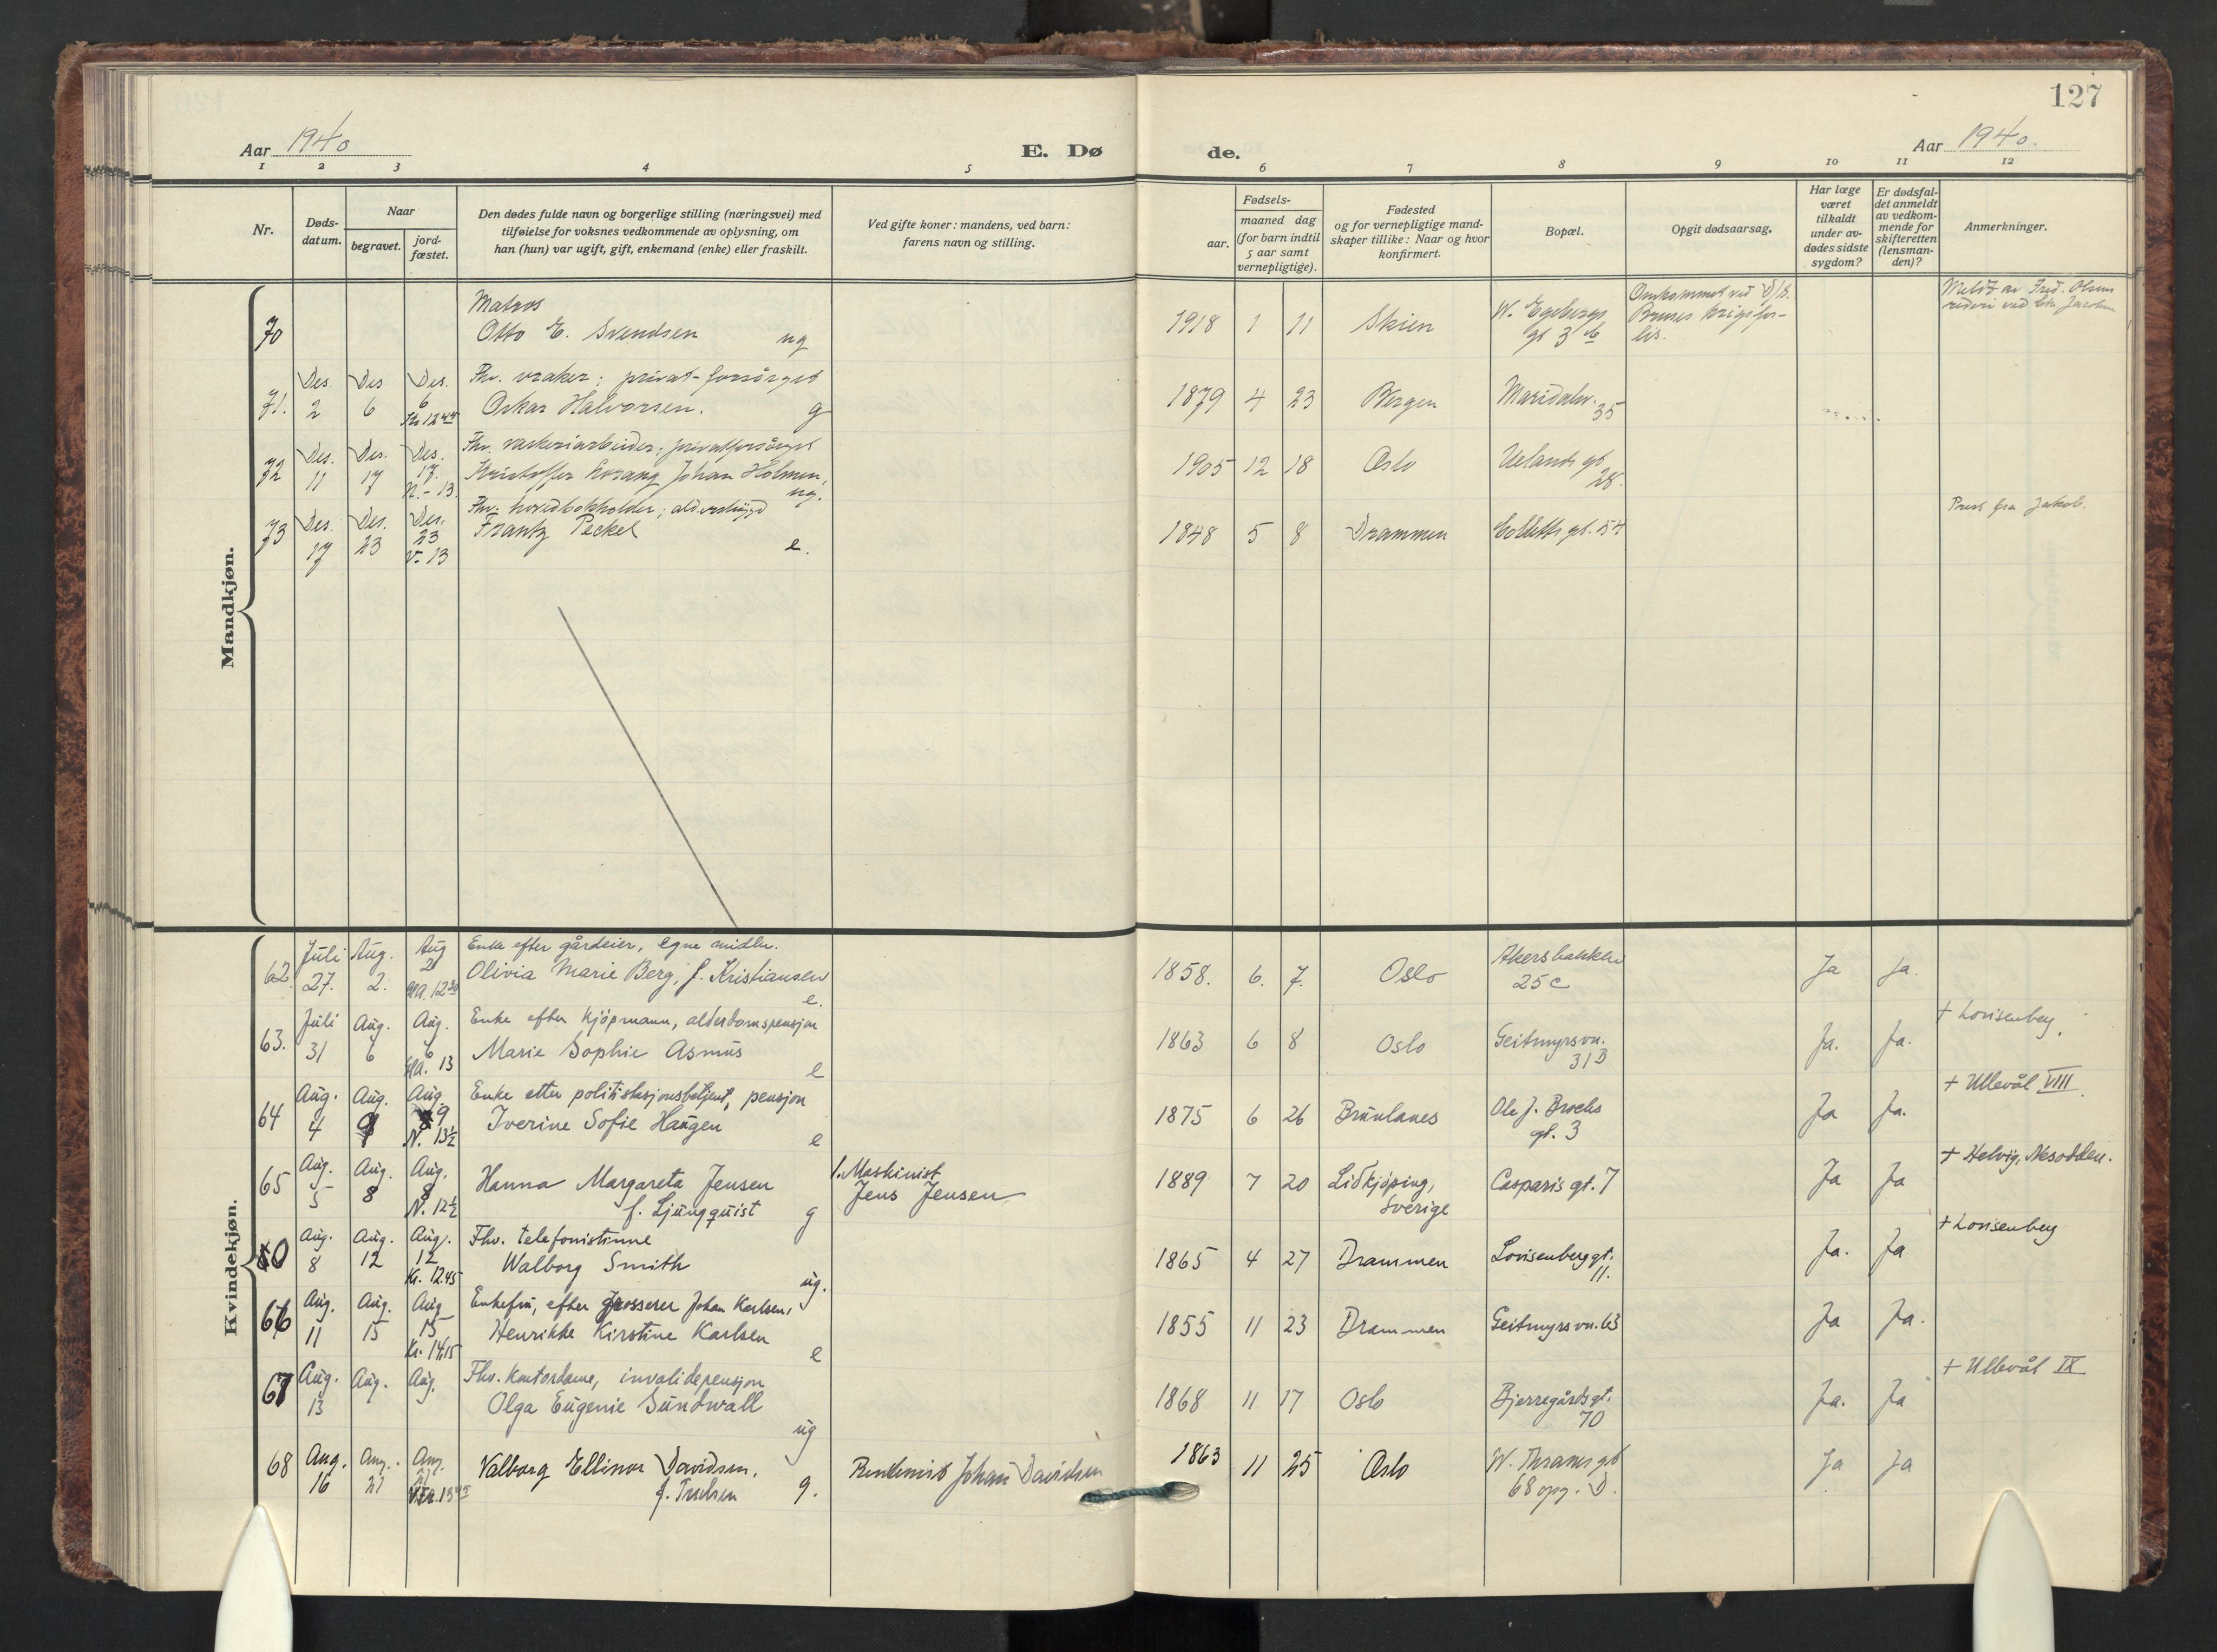 127
Aar 1940
E. Dø
de.
Aar 1940.
1 2 3 4 5 6 7 8 9 10 11 12
Nr.
Døds-
datum.
Naar
begravet.
jord-
fæstet.
Den dødes fulde navn og borgerlige stilling (næringsvei) med
tilføielse for voksnes vedkommende av oplysning, om
han (hun) var ugift, gift, enkemand (enke) eller fraskilt.
Ved gifte koner: mandens, ved barn:
farens navn og stilling.
Fødsels-
aar.
maaned dag
(for barn indtil
5 aar samt
vernepligtige).
Fødested
og for vernepligtige mand-
skaper tillike: Naar og hvor
konfirmert.
Bopæl.
Opgit dødsaarsag.
Har læge
været
tilkaldt
under av-
dødes sidste
sygdom?
Er dødsfal-
det anmeldt
av vedkom-
mende for
skifteretten
(lensman-
den)?
Anmerkninger.
Mandkjøn.
70
Matros
Otto E. Svendsen ug
1918 1 11 Skien
W. Egebergs
gt 3 b
Omkommet ved D/S.
Bruses krigsfor-
lis.
Meldt av Fred. Olsen
rederi ved
71. Des. 2 Des 6 Des. 6
Kr 12 45
Fhv. vraker; privat-forsørget
Oskar Halvorsen. g
1879 4 23 Bergen
Maridalsv.
35
72 Des. 11 Des. 17 Des. 17.
N. - 13.
Fhv. verkeriarbeider; privatforsørget
Kristoffer Johan Holmen,
ug.
1905 12 18 Oslo
Uelands gt
28.
73 Des. 17 Des. 23 Des. 23
V. 13
Fhv. hovedbokholder; alderstrygd
Frantz Peckel
e.
1848 5 8 Drammen Colletts gt. 54
Prest fra Jakob.
Kvindekjøn.
62. Juli 27. Aug. 2. Aug 2
Gla. 12 30
Enke efter gårdeier, egne midler.
Olivia Marie Berg, f. Kristiansen
e.
1858. 6. 7. Oslo
Akersbakken
25 c
Ja ja.
63. Juli 31 Aug. 6 Aug. 6
Gla. 13
Enke efter kjøpmann, alderdomspensjon
Marie Sophie Asmus
e
1863 6 8 Oslo
Geitmyrsvn.
31 B
Ja. Ja.
+ Lovisenberg.
64 Aug. 4 Aug. 9 Aug. 9
N. 13½
Enke etter politistasjonsbetjent, pensjon
Iverine Sofie Haugen
e
1875 6 26 Brunlanes
Ole J. Brochs
gt. 3
Ja Ja.
+ Ullevål VIII
65 Aug. 5 Aug. 8 Aug. 8
N. 12½
Hanna Margareta Jensen
f. Ljungquist g
1. Maskinist
Jens Jensen
1889 7 20 Lidkjøping,
Sverige
Casparis gt. 7
Ja Ja
+ Helvig, Nesodden.
Aug. 8 Aug. 12 Aug. 12
Kr. 12.45
Fhv. telefonistinne
Walborg Smith
ug.
1865 4 27 Drammen
Lovisenberggt.
11.
Ja. Ja
+ Lovisenberg
66 Aug. 11 Aug. 15 Aug 15
Kr. 14.15
Enkefru, efter grosserer Johan Karlsen,
Henrikke Kirstine Karlsen
e
1855 11 23 Drammen Geitmyrsvn. 63
Ja Ja.
67 Aug. 13 Aug. Aug.
Fhv. kontordame, invalidepensjon
Olga Eugenie Sundwall
ug
1868 11 17 Oslo
Bjerregårdsgt.
70
Ja. Ja
+ Ullevål IX
68 Aug. 16 Aug. 21 Aug. 21
Valborg Ellinor Davidsen,
g.
Rentenist Johan Davidsen
1863 11 25 Oslo
W. Thranes gt
68 opg. D.
Ja Ja